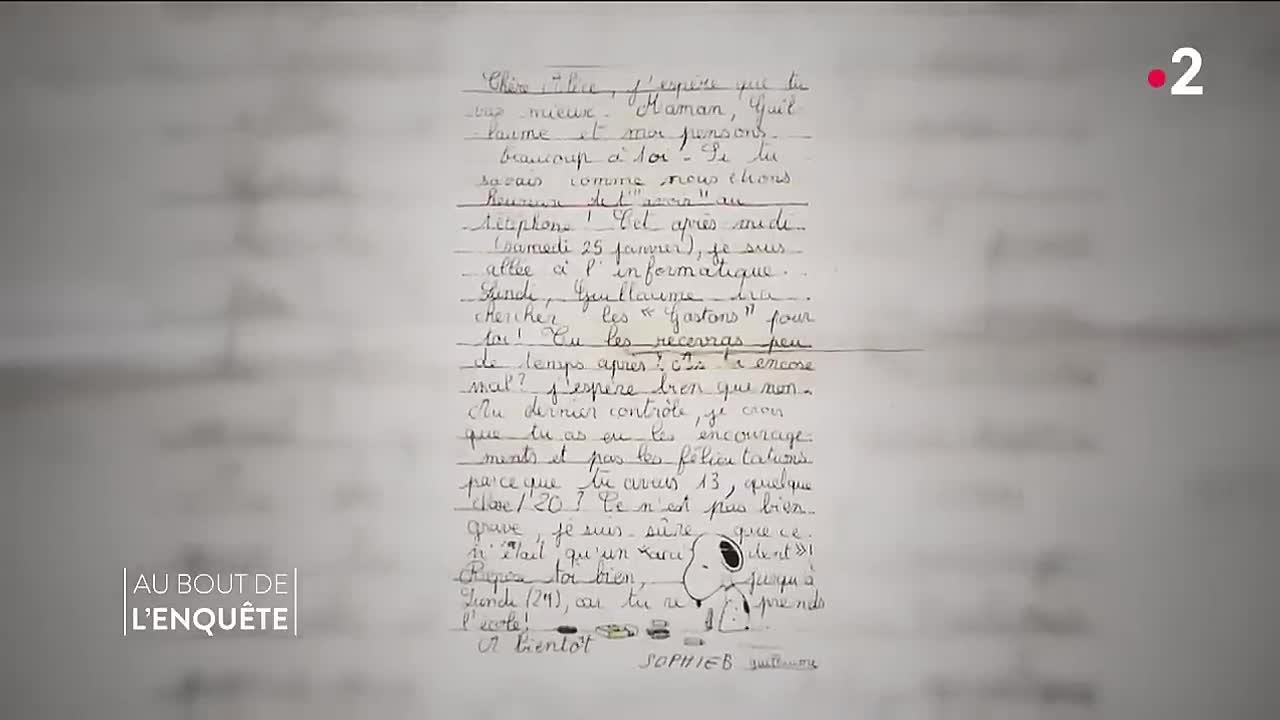 2
Chère Alice, j'espère que tu
vas mieux. Maman, Guil-
laume et moi pensons
beaucoup à toi - Si tu
savais comme nous étions
heureux de t'"avoir" au
téléphone! Cet après midi
(samedi 25 janvier), je suis
allée à l'informatique.
Lundi, Guillaume ira
chercher les "Gastons" pour
toi! Tu les recevras peu
de temps après! As tu encore
mal? j'espère bien que non.
Au dernier contrôle, je crois
que tu as eu les encourage-
ments et pas les félicitations
parce que tu avais 13, quelque
chose/20? Ce n'est pas bien
grave, je suis sûre que ce
n'était qu'un "accident"!
Repose toi bien, jusqu'à
Lundi (27), car tu reprends
l'école!
A bientôt
SOPHIEB guillaume
AU BOUT DE
L'ENQUÊTE